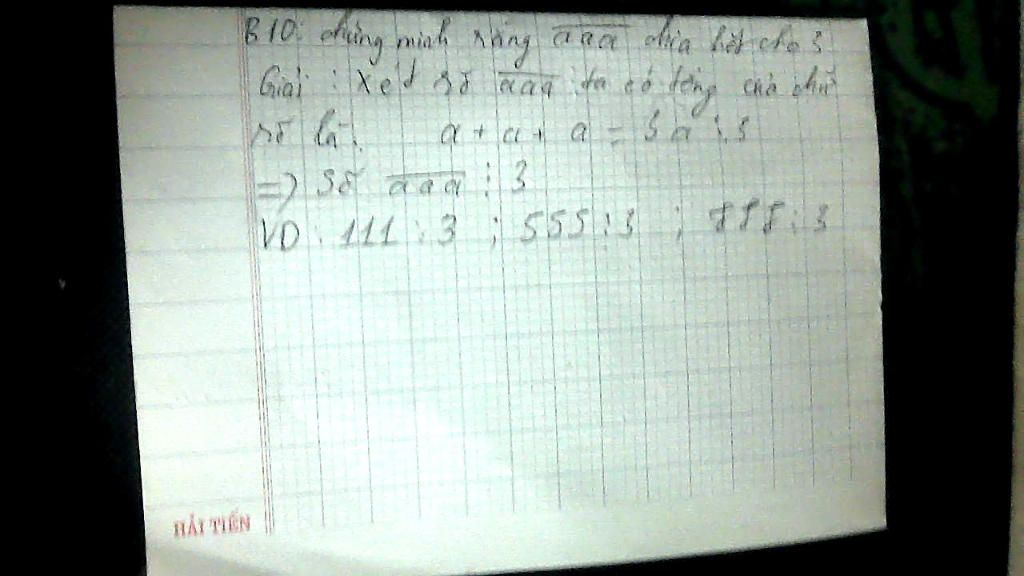 B10: chứng minh rằng a̅a̅a̅ chia hết cho 3
Giải : Xét số a̅a̅a̅ ta có tổng của chữ
số là: a + a + a = 3a ⋮ 3
=> Số a̅a̅a̅ ⋮ 3
VD : 111 ⋮ 3 ; 555 ⋮ 3 ; 888 ⋮ 3
HẢI TIẾN